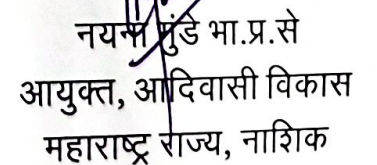 नयना मुंडे भा.प्र.से
आयुक्त, आदिवासी विकास
महाराष्ट्र राज्य, नाशिक